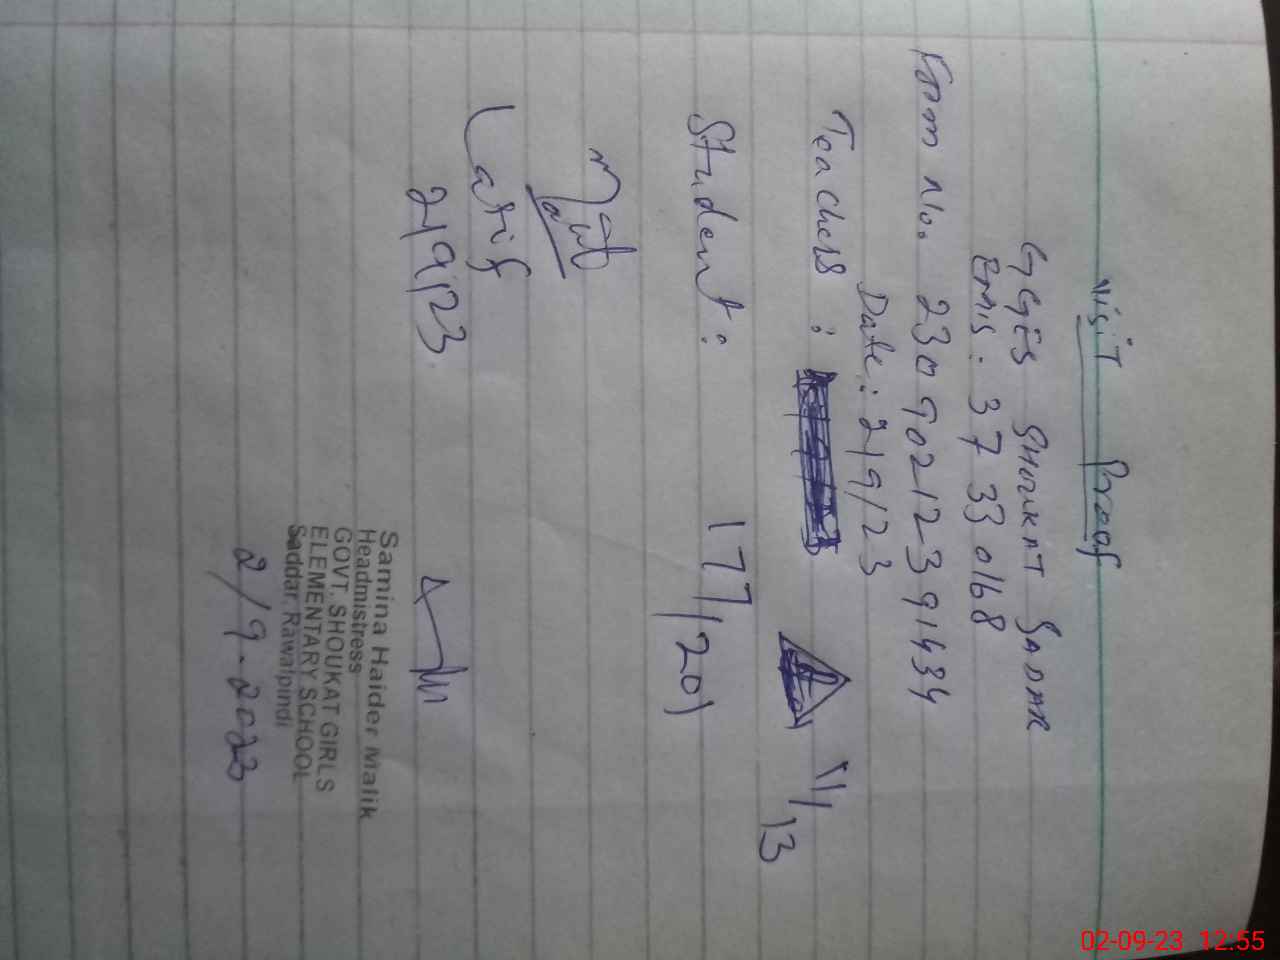 Visit Proof
GGES SHOUKAT SADDAR
EMIS: 37330168
Form No. 23090212391434
Date: 2/9/23
Teachers : 11/13
Student: 177/201
asif
2/9/23
Samina Haider Malik
Headmistress
GOVT. SHOUKAT GIRLS
ELEMENTARY SCHOOL
Saddar, Rawalpindi
2/9-2023
02-09-23 12:55